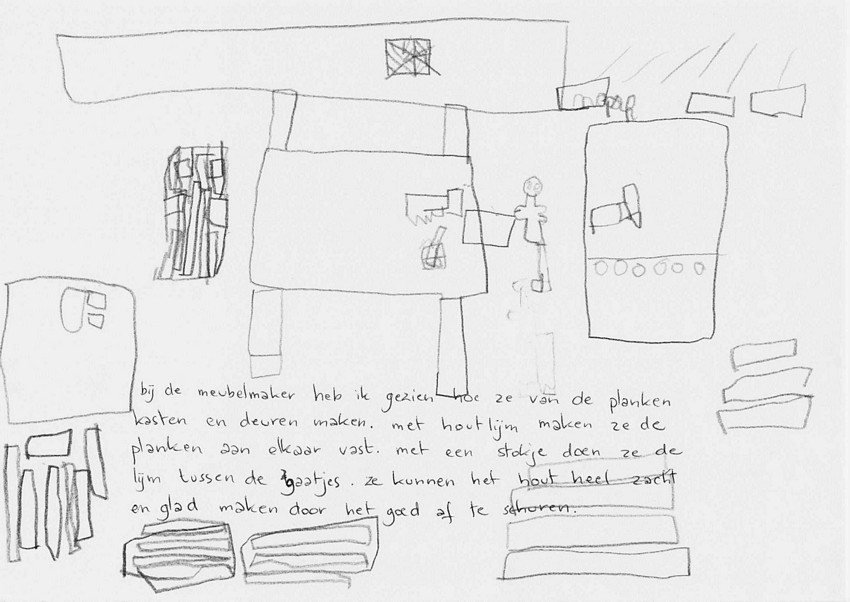 bij de meubelmaker heb ik gezien hoe ze van de planken
kasten en deuren maken. met houtlijm maken ze de
planken aan elkaar vast. met een stokje doen ze de
lijm tussen de gaatjes. ze kunnen het hout heel zacht
en glad maken door het goed af te schuren.